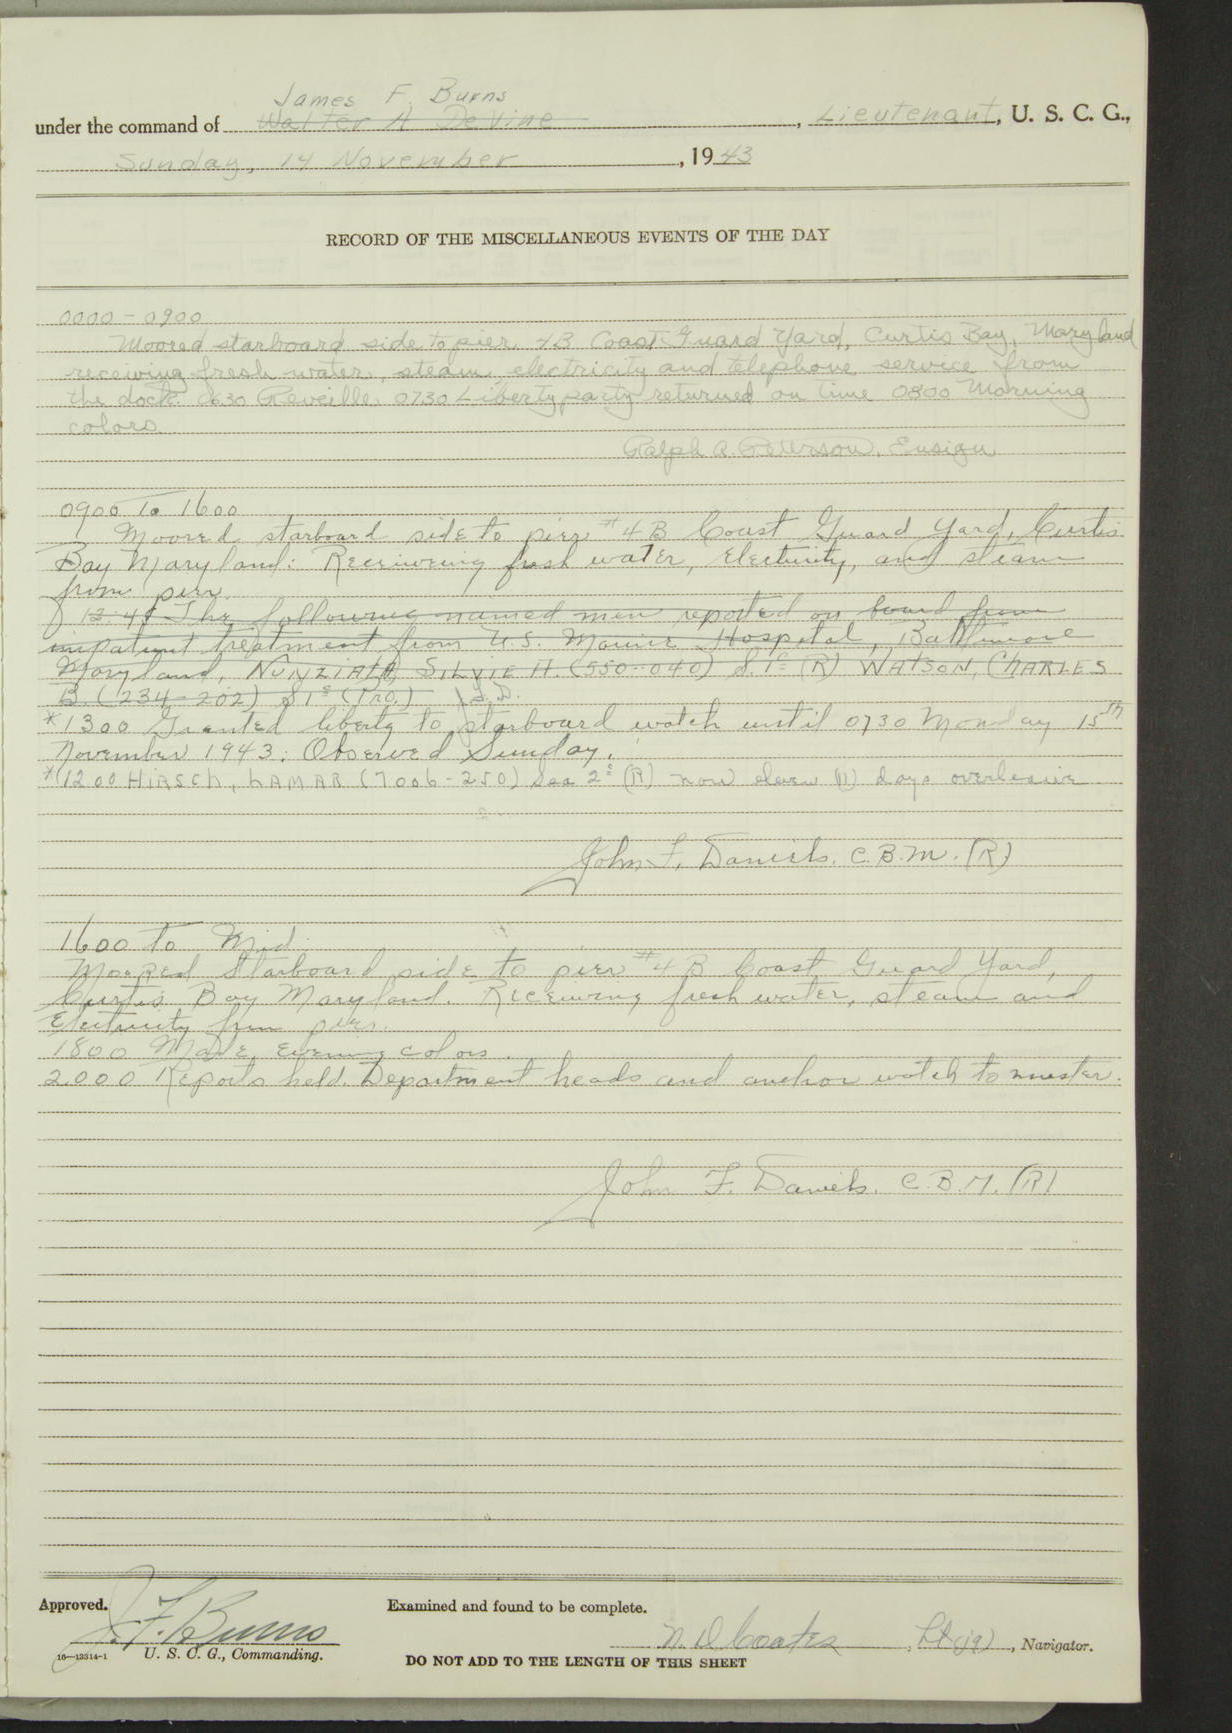 James F. Burns
under the command of Walter A DeVine, Lieutenant, U. S. C. G.,
Sunday, 14 November, 1943
RECORD OF THE MISCELLANEOUS EVENTS OF THE DAY
0000 - 0900
Moored starboard side to pier 4B Coast Guard Yard, Curtis Bay, Maryland
receiving fresh water, steam, electricity and telephone service from
the dock. 0630 Reveille. 0730 Liberty party returned on time 0800 Morning
colors.
Ralph A. Peterson, Ensign
0900 To 1600
Moored starboard side to pier #4B Coast Guard Yard, Curtis
Bay Maryland: Receiweing fresh water, Electricity, and steam
from pier.
13:45 The following named men reported on board from
inpatient treatment from U.S. Marine Hospital, Baltimore
Maryland, NUNZIATO, SILVIE H. (550-040) S.1c (R) WATSON, CHARLES
B. (234-202) S1c (Pro.) J.F.D.
*1300 Granted liberty to starboard watch until 0730 Monday 15th
November 1943: Observed Sunday.
*(1200 HIRSCH, LAMAR (7006-250) Sea 2c (R) now eleven (11) days overleave
John F. Daniels. C.B.M. (R)
1600 to Mid
Moored Starboard side to pier #4B Coast Guard Yard,
Curtis Bay Maryland. Receiving fresh water, steam and
Electricity from pier.
1800 Made Evening colors.
2000 Reports held. Department heads and anchor watch to muster.
John F. Daniels. C.B.M. (R)
Approved. Examined and found to be complete.
J. F. Burns
N. D Coates, Lt (jg), Navigator.
16—13314-1 U. S. C. G., Commanding.
DO NOT ADD TO THE LENGTH OF THIS SHEET